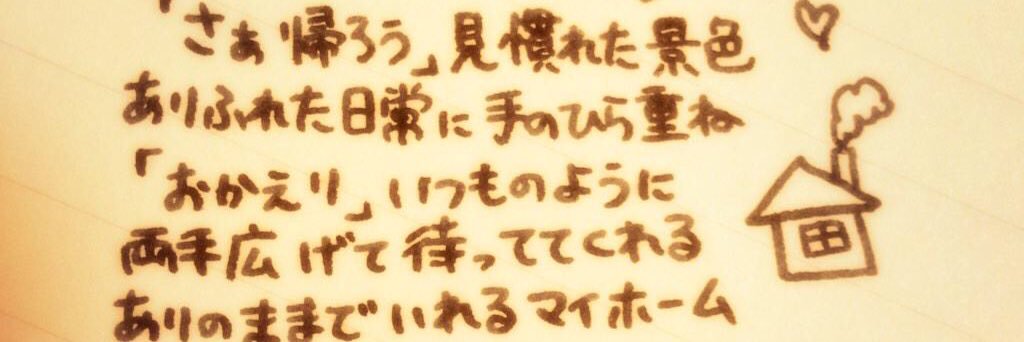 「さあ帰ろう」見慣れた景色
ありふれた日常に手のひら重ね
「おかえり」いつものように
両手広げて待っててくれる
ありのままでいれるマイホーム